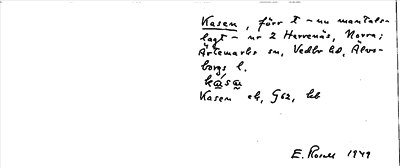 Kasen, förr t – nu mantals-
lagt – nr 2 Hervenäs, Norra;
Ärtemarks sn, Vedbo hd, Älvs-
borgs l.
Kasen ek, G62, hb
E. Rosell 1949